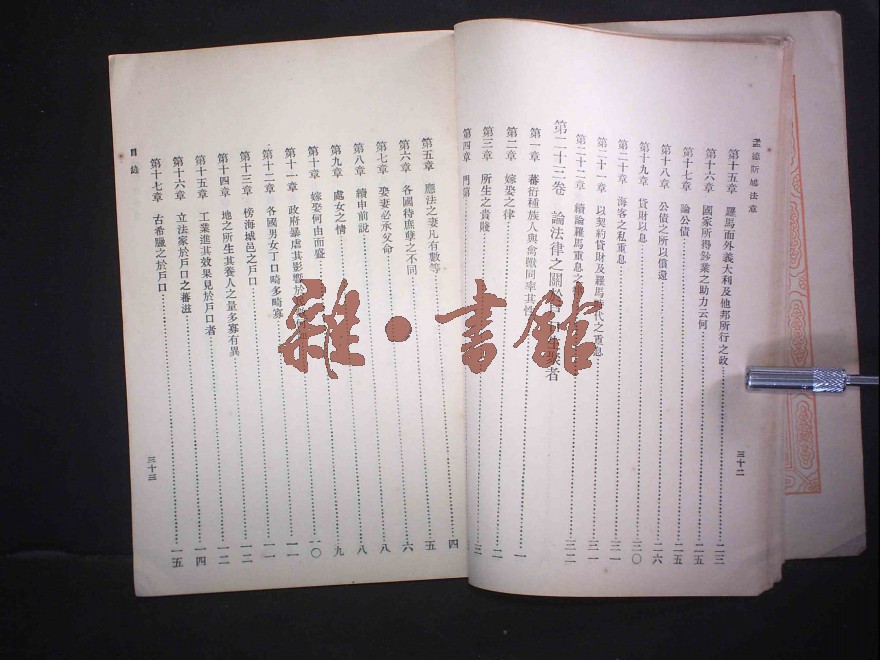 孟德斯鳩法意
第十五章 羅馬而外義大利及他邦所行之政 二三
第十六章 國家所得鈔業之助力云何 二五
第十七章 論公債 二五
第十八章 公債之所以償還 二六
第十九章 貸財以息 三〇
第二十章 海客之私重息 三一
第二十一章 以契約貸財及羅馬 代之重息 三一
第二十二章 續論羅馬重息之 三二
第二十三卷 論法律之關於 口生聚者
第一章 蕃衍種族人與禽獸同率其性 一
第二章 嫁娶之律 二
第三章 所生之貴賤 三
第四章 門第
三十二
第五章 應法之妻凡有數等 四
第六章 各國待庶孽之不同 五
第七章 娶妻必承父命 六
第八章 續申前說 八
第九章 處女之情 八
第十章 嫁娶何由而盛 九
第十一章 政府暴虐其影響於 一〇
第十二章 各國男女丁口畸多畸寡 一一
第十三章 傍海城邑之戶口 一一
第十四章 地之所生其養人之量多寡有異 一二
第十五章 工業進其效果見於戶口者 一二
第十六章 立法家於戶口之蕃滋 一四
第十七章 古希臘之於戶口 一五
目錄
三十三
雜·書館